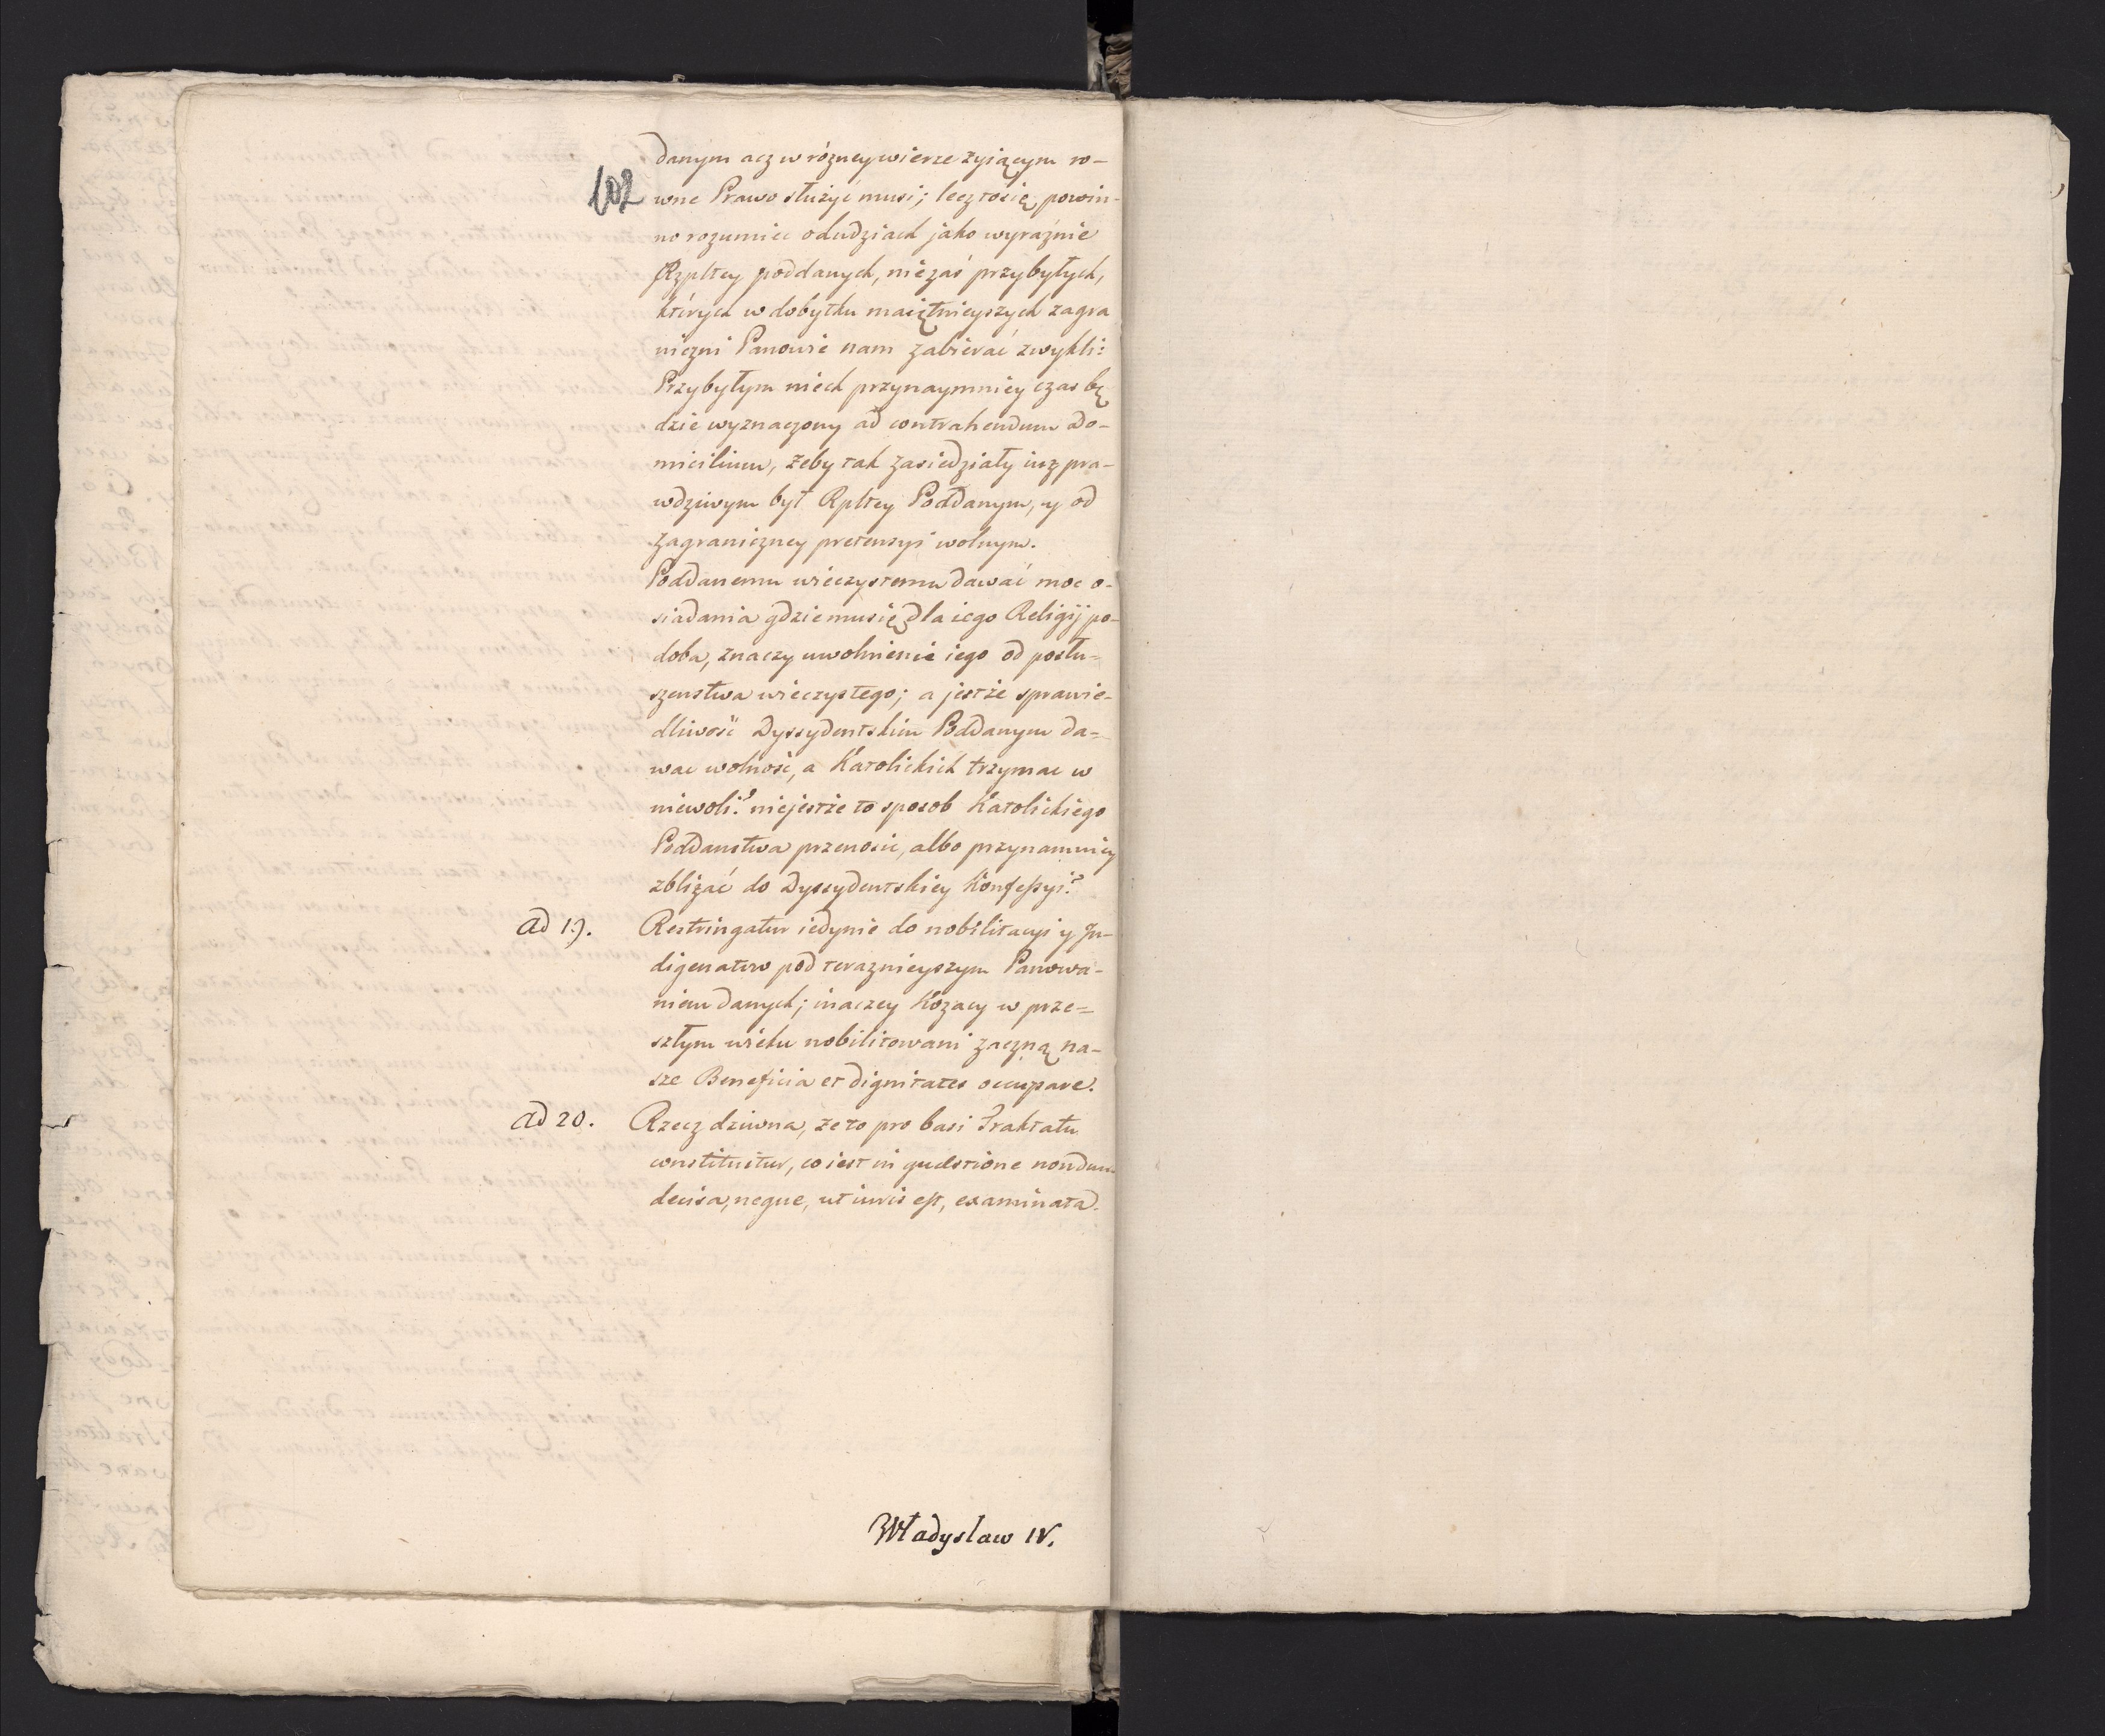 danym acz w rózney wierze żyiącym ro-
102
wne Prawo służyć musi; lecz to się powin-
no rozumiec o ludziach jako wyraźnie
Rzpltey poddanych, nie zaś przybyłych,
których w dobytku maiętnieyszych zagra
niczni Panowie nam zabierać zwykli:
Przybyłym niech przynaymniey czas bę
dzie wyznaczony ad contrahendum do-
micilium, żeby tak zasiedziały iuż pra-
wdziwym był Rpltey Poddanym, y od
zagraniczney pretensyi wolnym.
Poddanemu wieczystemu dawać moc o-
siadania gdzie mu się dla iego Religij po-
doba, znaczy uwolnienie iego od posłu-
szenstwa wieczystego; a jestże sprawie-
dliwość Dyssydentskim Poddanym da-
wac wolność, a Katolickich trzymac w
niewoli? niejestże to sposob Katolickiego
Poddanstwa przenosic, albo przynamniey
zbliżać do Dyssydentskiey Konfessyi?
Ad 19. Restringatur iedynie do nobilitacyi y In-
digenatow pod teraznieyszym Panowa-
niem danych; inaczey Kozacy w prze-
szłym wieku nobilitowani zaczną na-
sze Beneficia et dignitates occupare.
Ad 20. Rzecz dziwna, że to pro basi Traktatu
constituitur, co iest in quaestione nondum
decisa, neque, ut iuris est, examinata.
Władysław IV.